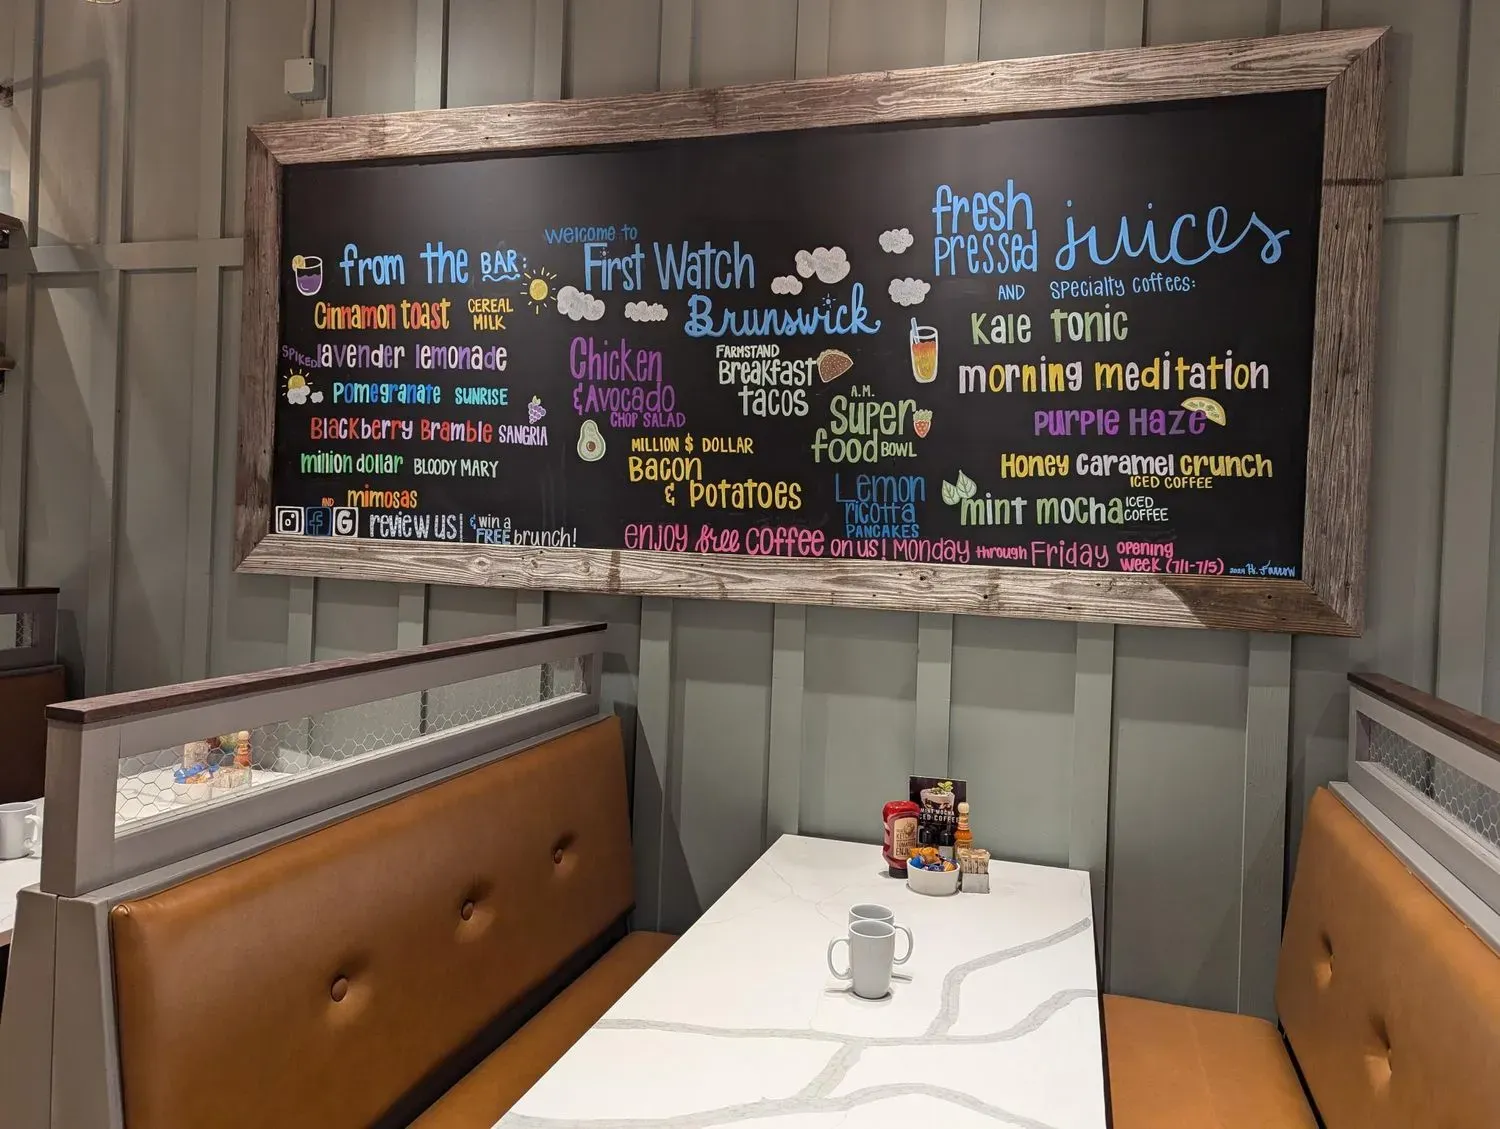 from the BAR:
Cinnamon toast CEREAL MILK
SPIKED lavender lemonade
Pomegranate SUNRISE
Blackberry Bramble SANGRIA
million dollar BLOODY MARY
AND mimosas
review us! & win a FREE brunch!
Welcome to
First Watch
Brunswick
Chicken
& Avocado
CHOP SALAD
FARMSTAND
Breakfast
tacos
A.M.
Super
food BOWL
MILLION $ DOLLAR
Bacon
& Potatoes
Lemon
ricotta
PANCAKES
enjoy free coffee on us! Monday through Friday opening week (7/1-7/5)
fresh
pressed juices
AND specialty coffees:
Kale tonic
morning meditation
Purple Haze
Honey caramel crunch
ICED COFFEE
mint mocha ICED COFFEE
2024
MINT MOCHA
ICED COFFEE